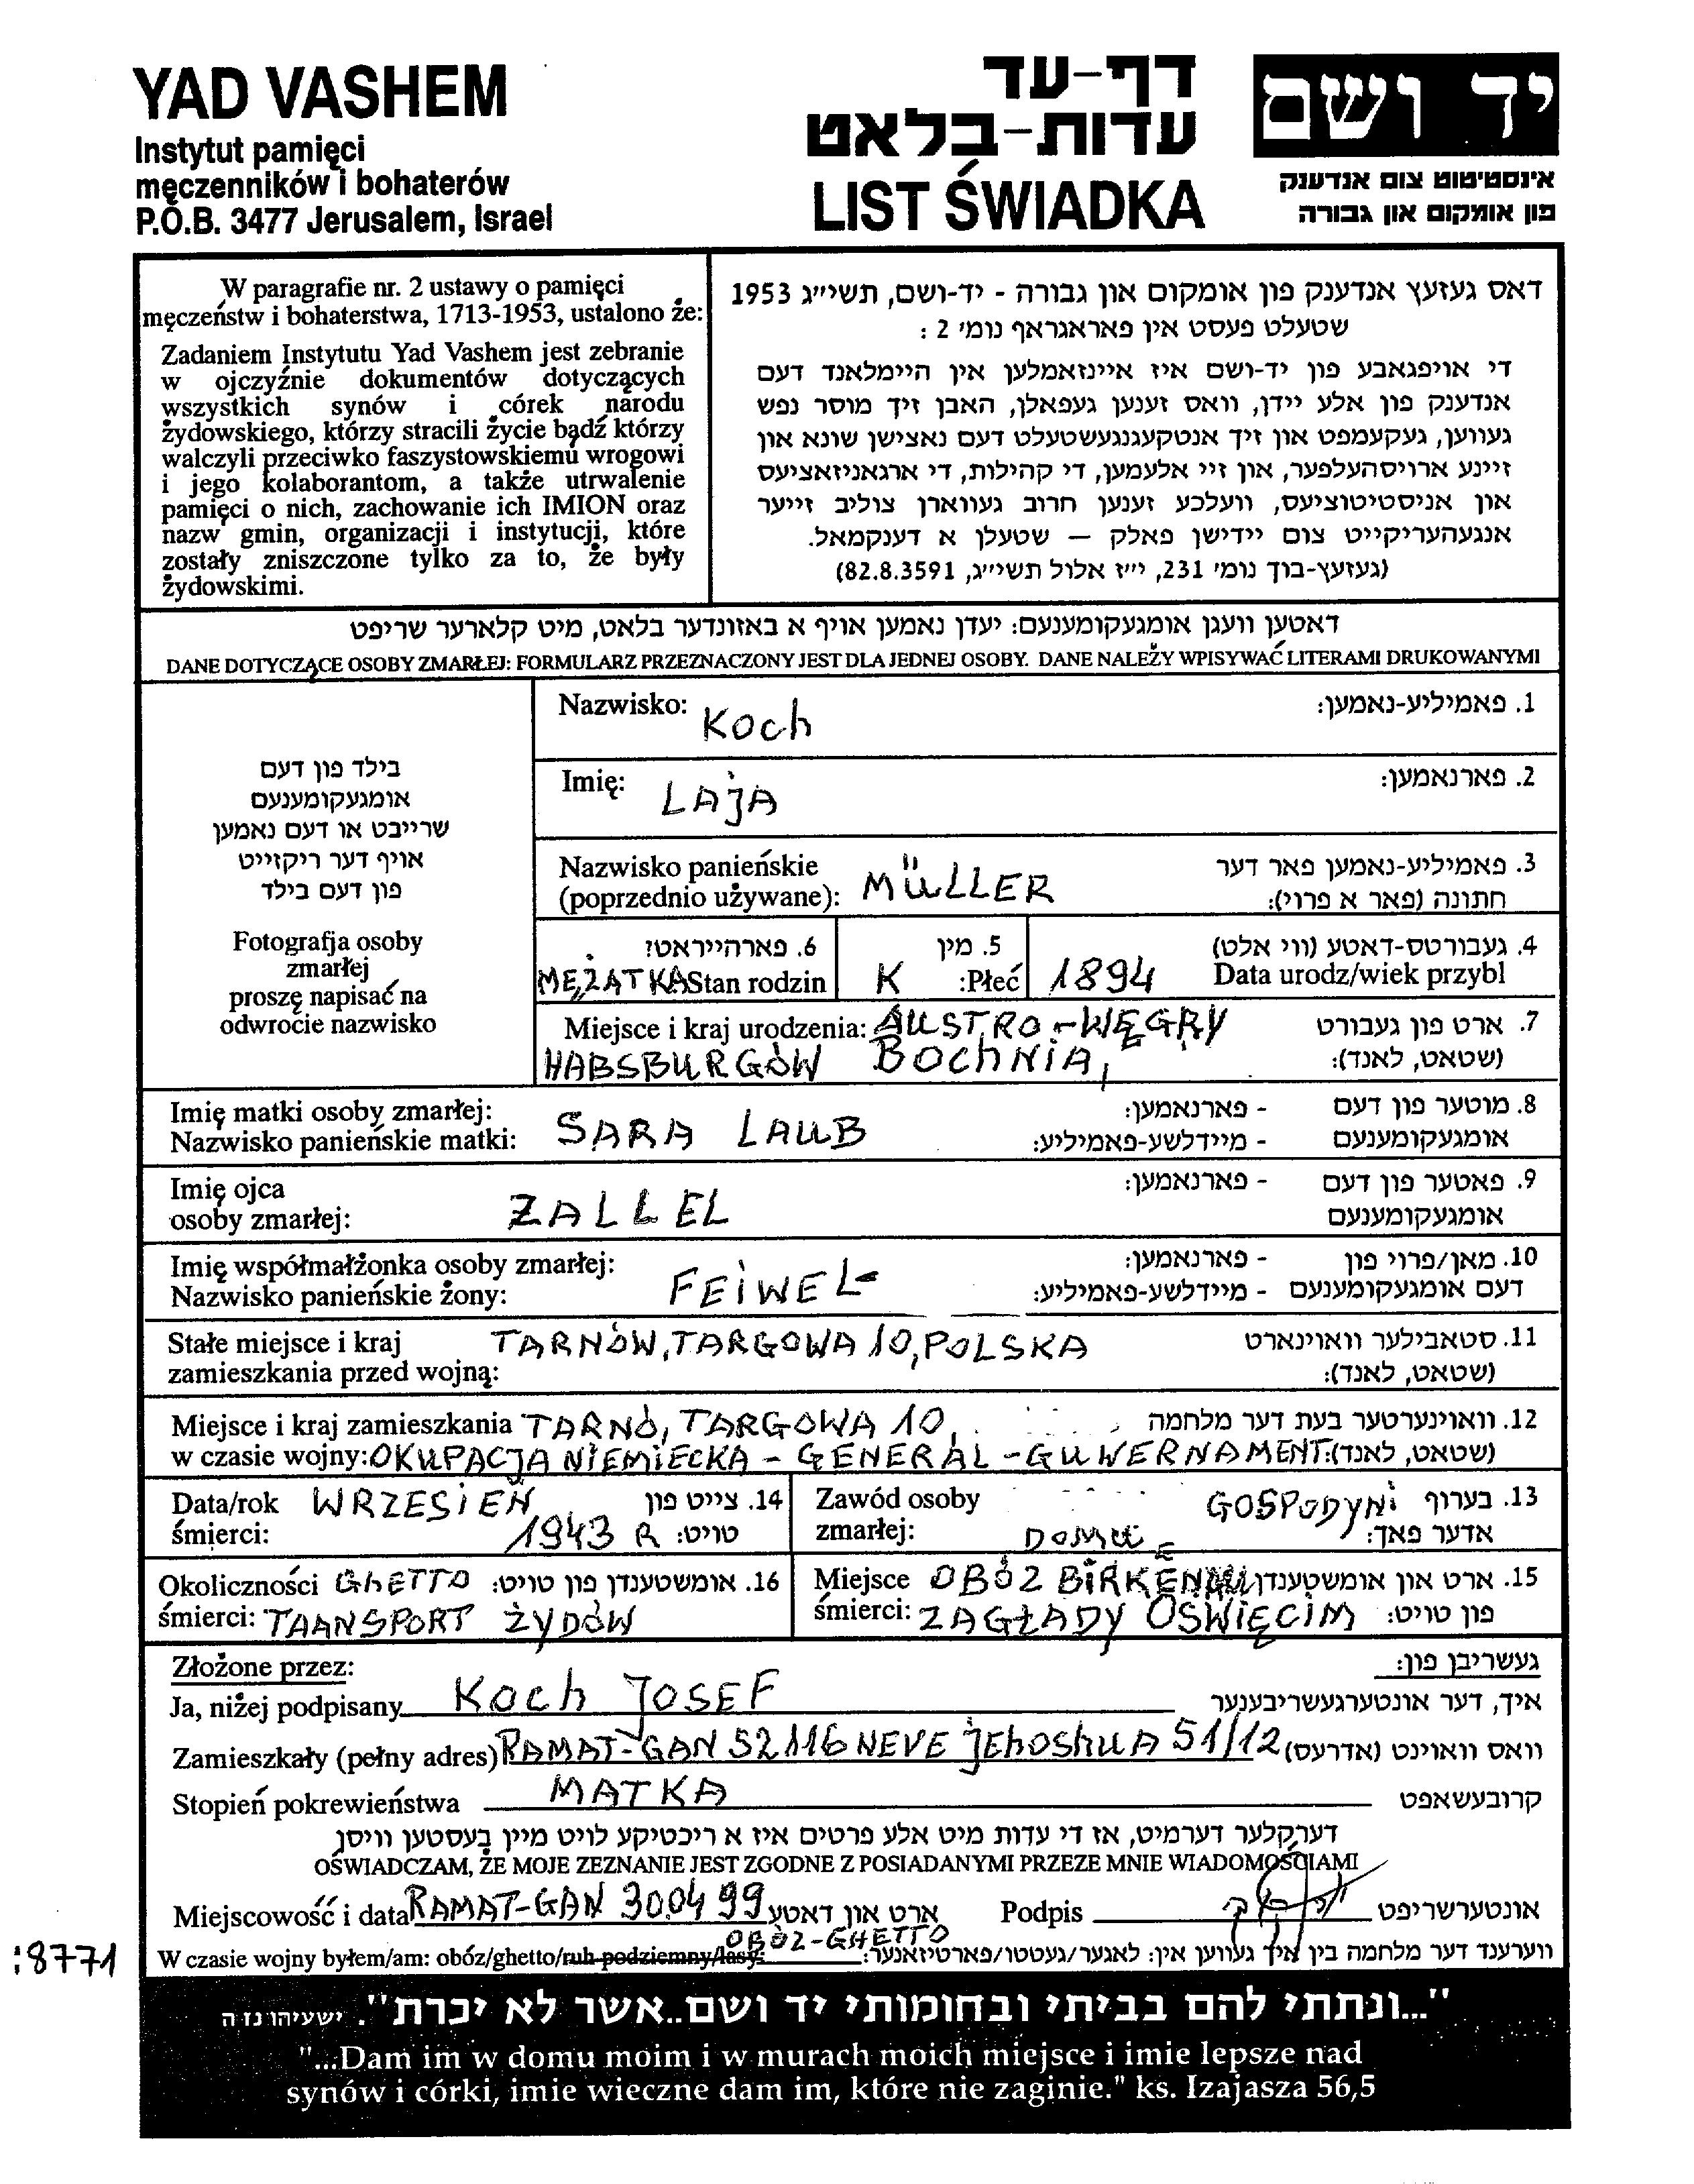 YAD VASHEM
Instytut pamięci
męczenników i bohaterów
P.O.B. 3477 Jerusalem, Israel
דף-עד
עדות-בלאט
LIST ŚWIADKA
יד ושם
אינסטיטוט צום אנדענק
פון אומקום און גבורה
W paragrafie nr. 2 ustawy o pamięci
męczeństw i bohaterstwa, 1713-1953, ustalono że:
Zadaniem Instytutu Yad Vashem jest zebranie
w ojczyźnie dokumentów dotyczących
wszystkich synów i córek narodu
żydowskiego, którzy stracili życie bądź którzy
walczyli przeciwko faszystowskiemu wrogowi
i jego kolaborantom, a także utrwalenie
pamięci o nich, zachowanie ich IMION oraz
nazw gmin, organizacji i instytucji, które
zostały zniszczone tylko za to, że były
żydowskimi.
דאס געזעץ אנדענק פון אומקום און גבורה - יד-ושם, תשי״ג 1953
שטעלט פעסט אין פאראגראף נומ׳ 2 :
די אויפגאבע פון יד-ושם איז איינזאמלען אין היימלאנד דעם
אנדענק פון אלע יידן, וואס זענען געפאלן, האבן זיך מוסר נפש
געווען, געקעמפט און זיך אנטקעגנגעשטעלט דעם נאצישן שונא און
זיינע ארויסהעלפער, און זיי אלעמען, די קהילות, די ארגאניזאציעס
און אניסטיטוציעס, וועלכע זענען חרוב געווארן צוליב זייער
אנגעהעריקייט צום יידישן פאלק — שטעלן א דענקמאל.
(געזעץ-בוך נומ׳ 231, י״ז אלול תשי״ג, 82.8.3591)
דאטען וועגן אומגעקומענעם: יעדן נאמען אויף א באזונדער בלאט, מיט קלארער שריפט
DANE DOTYCZĄCE OSOBY ZMARŁEJ: FORMULARZ PRZEZNACZONY JEST DLA JEDNEJ OSOBY. DANE NALEŻY WPISYWAĆ LITERAMI DRUKOWANYMI
בילד פון דעם
אומגעקומענעם
שרייבט או דעם נאמען
אויף דער ריקזייט
פון דעם בילד
Fotografja osoby
zmarłej
proszę napisać na
odwrocie nazwisko
Nazwisko: Koch 1. פאמיליע-נאמען:
Imię: LAJA 2. פארנאמען:
Nazwisko panieńskie 3. פאמיליע-נאמען פאר דער
(poprzednio używane): MÜLLER חתונה (פאר א פרוי):
6. פארהייראט? 5. מין 4. געבורטס-דאטע (ווי אלט)
MĘŻATKA Stan rodzin K Płeć: 1894 Data urodz/wiek przybl
Miejsce i kraj urodzenia: AUSTRO-WĘGRY 7. ארט פון געבורט
HABSBURGÓW BOCHNIA, (שטאט, לאנד):
Imię matki osoby zmarłej: - פארנאמען: 8. מוטער פון דעם
Nazwisko panieńskie matki: SARA LAUB - מיידלשע-פאמיליע: אומגעקומענעם
Imię ojca - פארנאמען: 9. פאטער פון דעם
osoby zmarłej: ZALLEL אומגעקומענעם
Imię współmałżonka osoby zmarłej: - פארנאמען: 10. מאן/פרוי פון
Nazwisko panieńskie żony: FEIWEL - מיידלשע-פאמיליע: דעם אומגעקומענעם
Stałe miejsce i kraj TARNÓW, TARGOWA 10, POLSKA 11. סטאבילער וואוינארט
zamieszkania przed wojną: (שטאט, לאנד):
Miejsce i kraj zamieszkania TARNÓ, TARGOWA 10, 12. וואוינערטער בעת דער מלחמה
w czasie wojny: OKUPACJA NIEMIECKA - GENERAL-GUWERNAMENT (שטאט, לאנד):
Data/rok WRZESIEŃ 14. צייט פון
śmierci: 1943 R טויט:
Zawód osoby GOSPODYNI 13. בערוף
zmarłej: DOMU אדער פאך:
Okoliczności GhETTO 16. אומשטענדן פון טויט:
śmierci: TAANSPORT ŻYDÓW
Miejsce OBÓZ BIRKENAU 15. ארט און אומשטענדן
śmierci: ZAGŁADY OŚWIĘCIM פון טויט:
Złożone przez: געשריבן פון:
Ja, niżej podpisany Koch JOSEF איך, דער אונטערגעשריבענער
Zamieszkały (pełny adres) RAMAT-GAN 52116 NEVE JEhOShUA 51/12 וואס וואוינט (אדרעס)
Stopień pokrewieństwa MATKA קרובעשאפט
דערקלער דערמיט, אז די עדות מיט אלע פרטים איז א ריכטיקע לויט מיין בעסטען וויסן
OŚWIADCZAM, ŻE MOJE ZEZNANIE JEST ZGODNE Z POSIADANYMI PRZEZE MNIE WIADOMOŚCIAMI
Miejscowość i data RAMAT-GAN 30.04 99 ארט און דאטע Podpis אונטערשריפט
OBÓZ-GHETTO
W czasie wojny byłem/am: obóz/ghetto/ruh podziemny/lasy: ווערענד דער מלחמה בין איך געווען אין: לאגער/געטטו/פארטיזאנער:
:8771
"...ונתתי להם בביתי ובחומותי יד ושם..אשר לא יכרת". ישעיהו נז ה
"...Dam im w domu moim i w murach moich miejsce i imie lepsze nad
synów i córki, imie wieczne dam im, które nie zaginie." ks. Izajasza 56,5